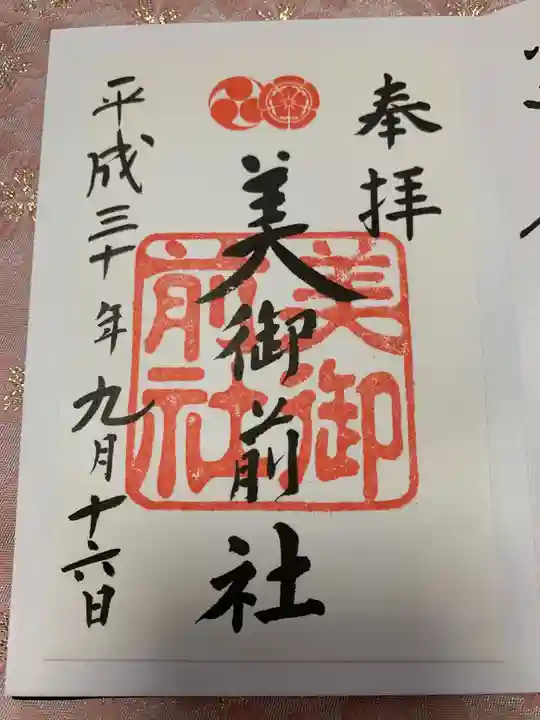 奉拝
美御前社
美御前社
平成三十年九月十六日